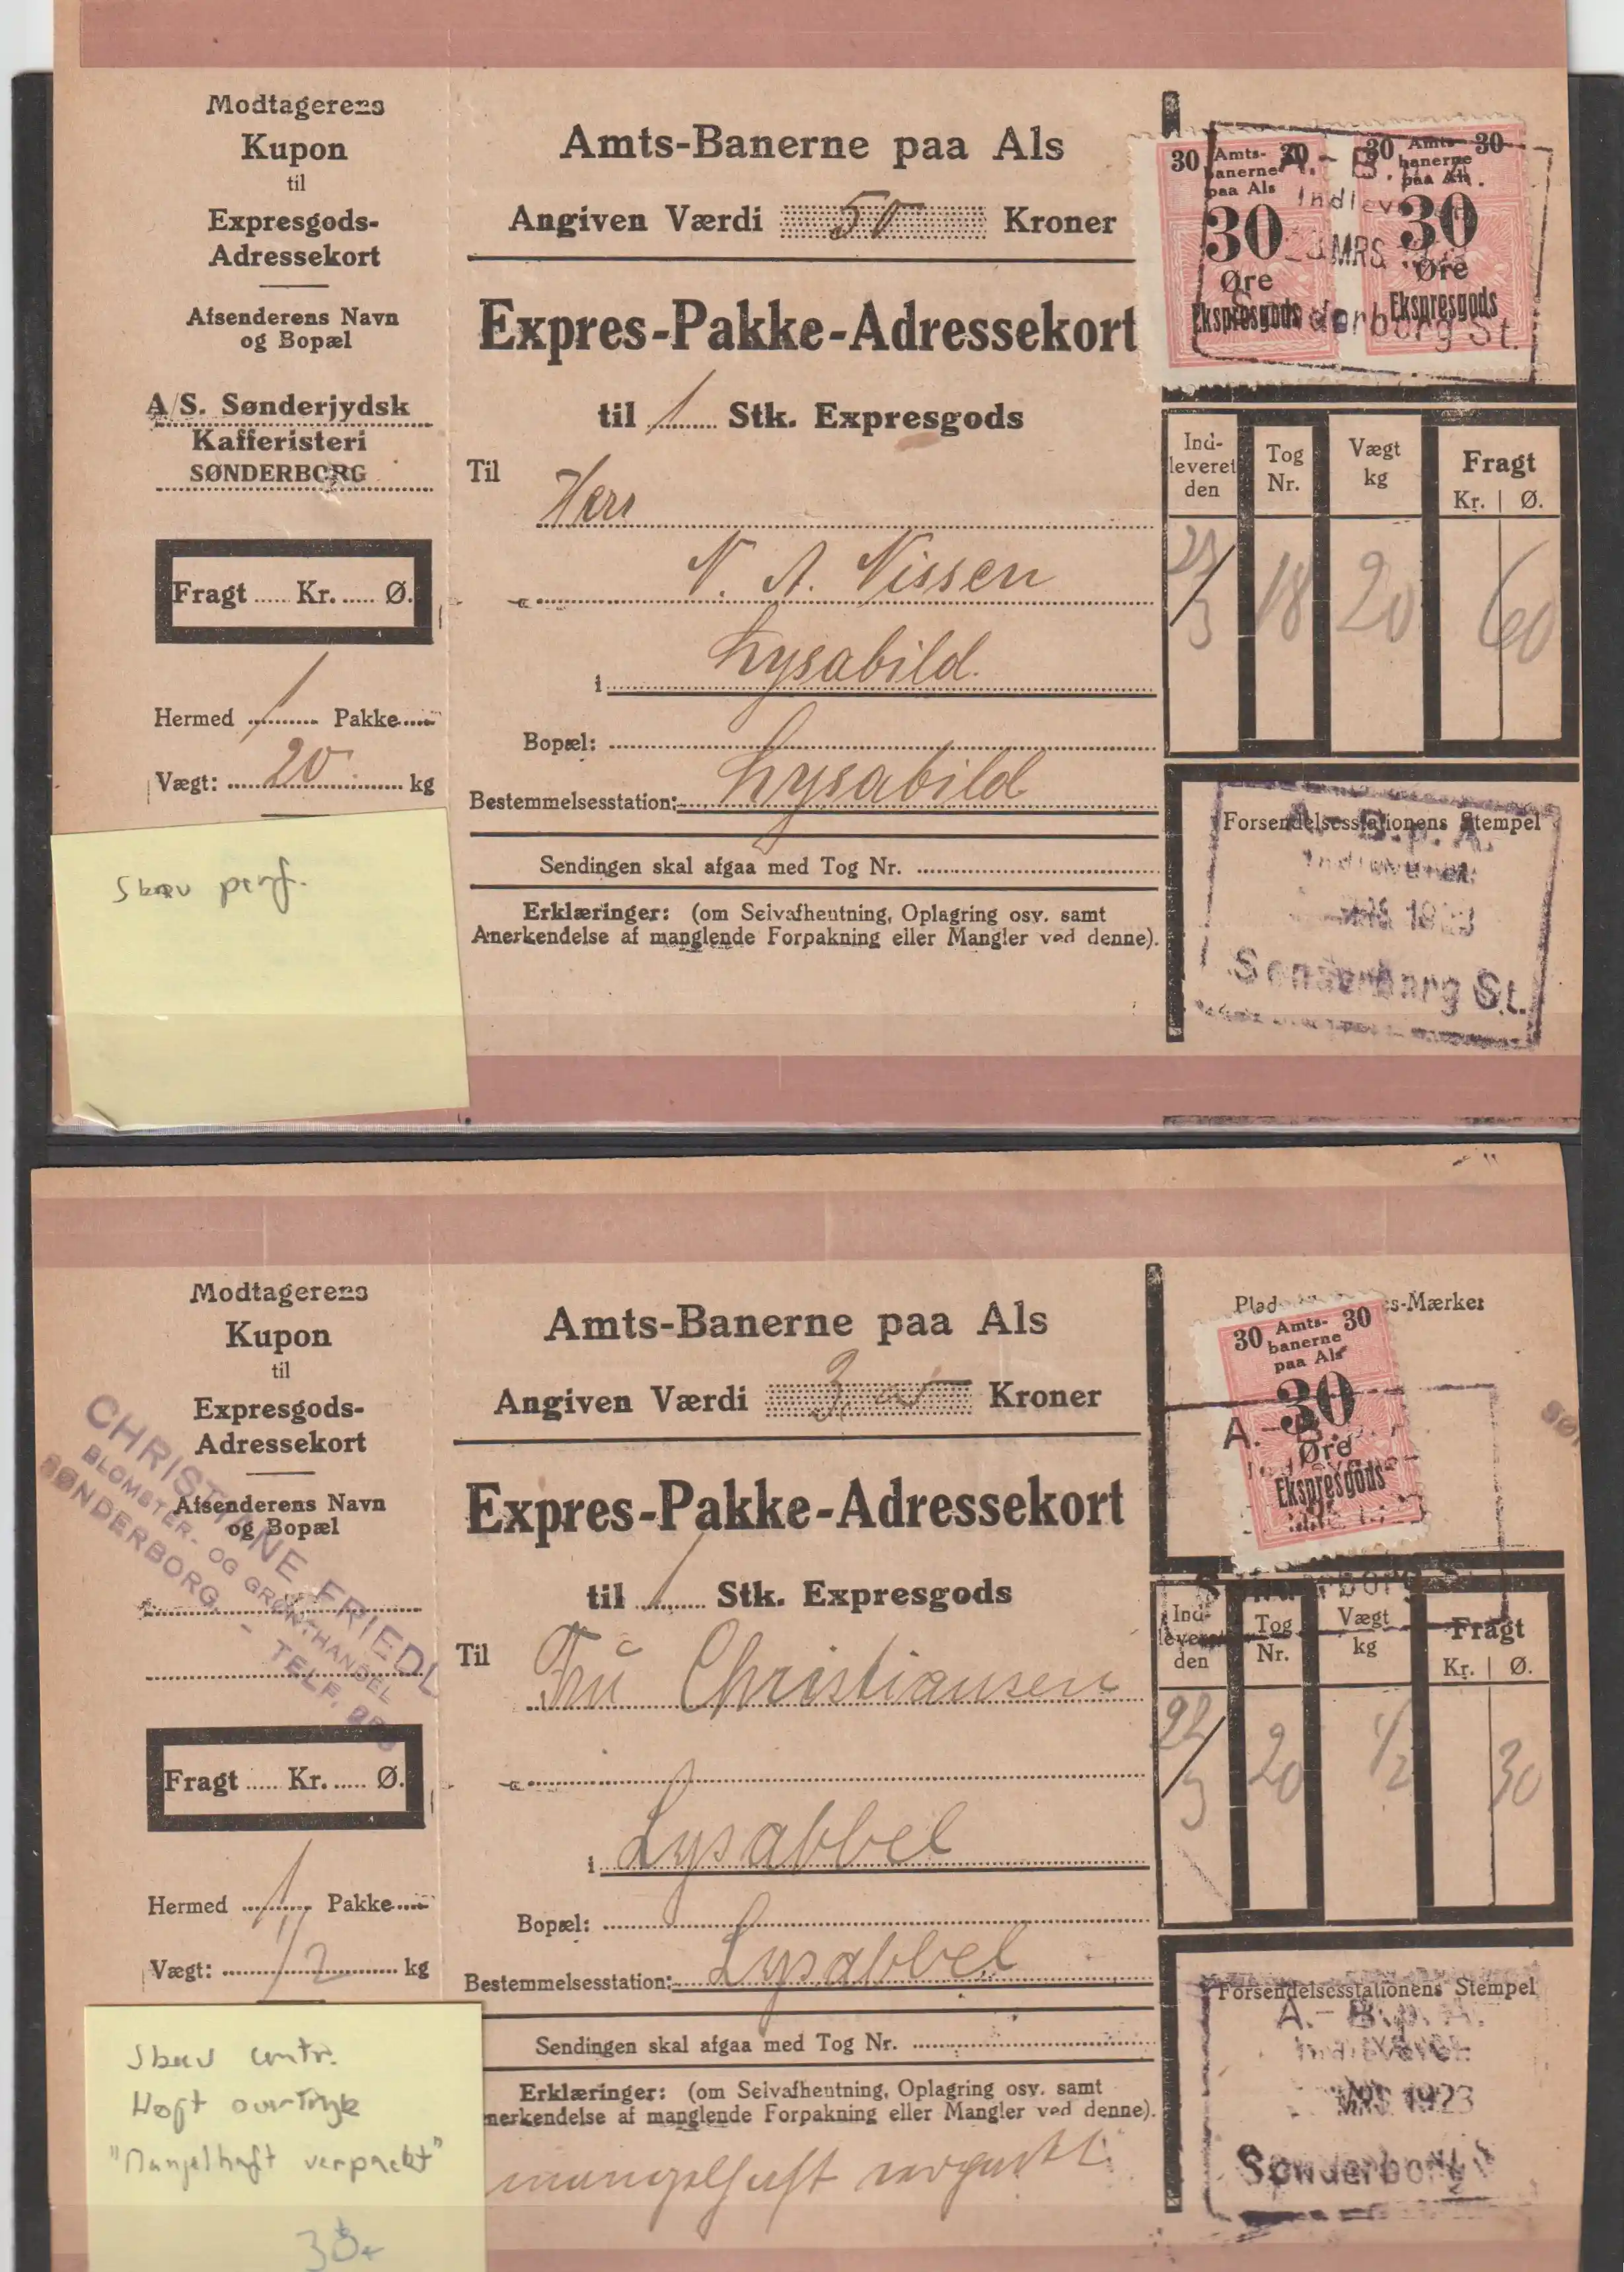 Modtagerens
Kupon
til
Expresgods-
Adressekort
Afsenderens Navn
og Bopæl
A/S. Sønderjydsk
Kafferisteri
SØNDERBORG
Fragt ..... Kr. ..... Ø.
Hermed 1 Pakke
Vægt: 20 kg
Skæv perf.
Amts-Banerne paa Als
Angiven Værdi 50 Kroner
Expres-Pakke-Adressekort
til 1 Stk. Expresgods
Til
Herr
N. A. Nissen
i Lysabild.
Bopæl:
Bestemmelsesstation: Lysabild
Sendingen skal afgaa med Tog Nr.
Erklæringer: (om Selvafhentning, Oplagring osv. samt
Anerkendelse af manglende Forpakning eller Mangler ved denne).
30 Amts- 30
banerne
paa Als
30
Øre
Ekspresgods
30 Amts- 30
banerne
paa Als
30
Øre
Ekspresgods
A.-B.
Indlev
MRS
Sønderborg St.
Ind-
leveret
den
Tog
Nr.
Vægt
kg
Fragt
Kr. | Ø.
23/3 18 20 60
Forsendelsesstationens Stempel
A.-B.p.A.
Indleveret
MRS 1923
Sønderborg St.
Modtagerens
Kupon
til
Expresgods-
Adressekort
Afsenderens Navn
og Bopæl
CHRISTIANE FRIEDL
BLOMSTER- OG GRØNTHANDEL
SØNDERBORG. - TELF.
Fragt ..... Kr. ..... Ø.
Hermed 1 Pakke
Vægt: 1/2 kg
Skæv centr.
Højt overtryk
"Mangelhaft verpackt"
Amts-Banerne paa Als
Angiven Værdi Kroner
Expres-Pakke-Adressekort
til 1 Stk. Expresgods
Til Fru Christiansen
i Lysabbel
Bopæl:
Bestemmelsesstation: Lysabbel
Sendingen skal afgaa med Tog Nr.
Erklæringer: (om Selvafhentning, Oplagring osv. samt
nerkendelse af manglende Forpakning eller Mangler ved denne).
mangelhaft verpackt.
Plad s-Mærker
30 Amts- 30
banerne
paa Als
30
Øre
Ekspresgods
Ind-
leveret
den
Tog
Nr.
Vægt
kg
Fragt
Kr. | Ø.
22/3 20 1/2 30
Forsendelsesstationens Stempel
A.-B.p.A.
Indleveret
MRS 1923
Sønderborg